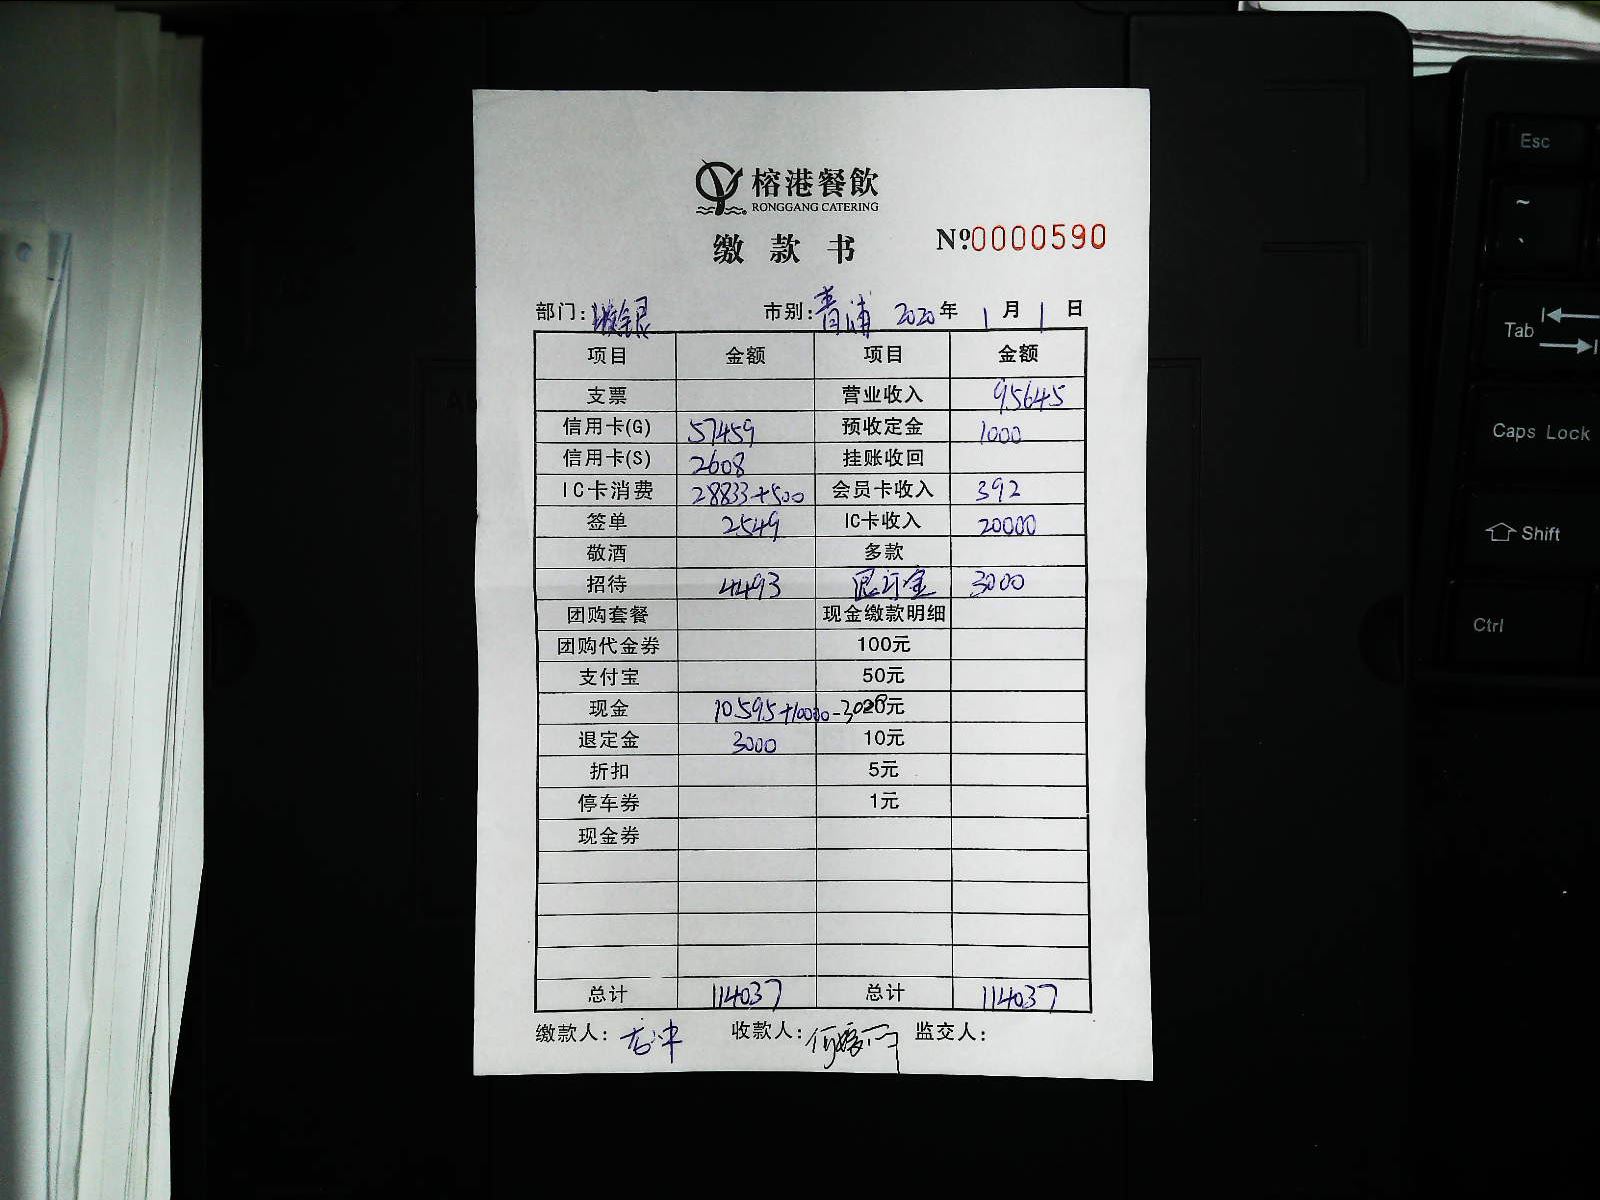 榕港餐飲
RONGGANG CATERING
缴款书 Nº0000590
部门:收银 市别:青浦 2020年1月1日
项目 金额 项目 金额
支票 营业收入 95645
信用卡(G) 57459 预收定金 1000
信用卡(S) 2608 挂账收回
IC卡消费 28833+500 会员卡收入 392
签单 2549 IC卡收入 20000
敬酒 多款
招待 4493 退订金 3000
团购套餐 现金缴款明细
团购代金券 100元
支付宝 50元
现金 10595+10000-3000 20元
退定金 3000 10元
折扣 5元
停车券 1元
现金券
总计 114037 总计 114037
缴款人: 收款人: 监交人:
Esc
~
`
Tab
Caps Lock
Shift
Ctrl